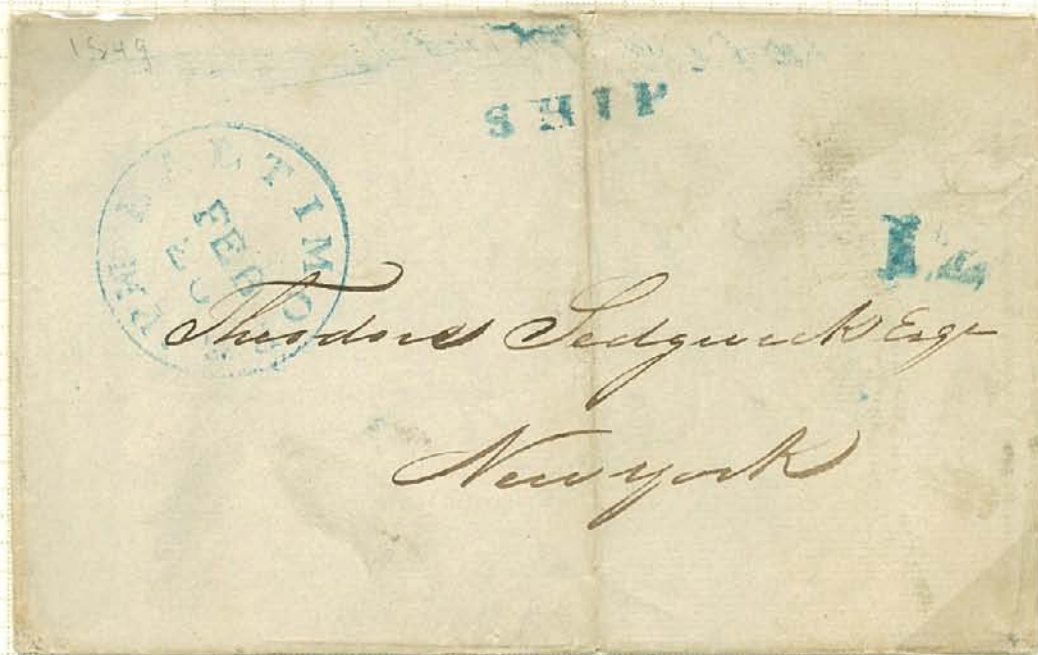 1849
SHIP
BALTIMORE
FEB
20
12
Theodore Sedgwick Esqr
New york